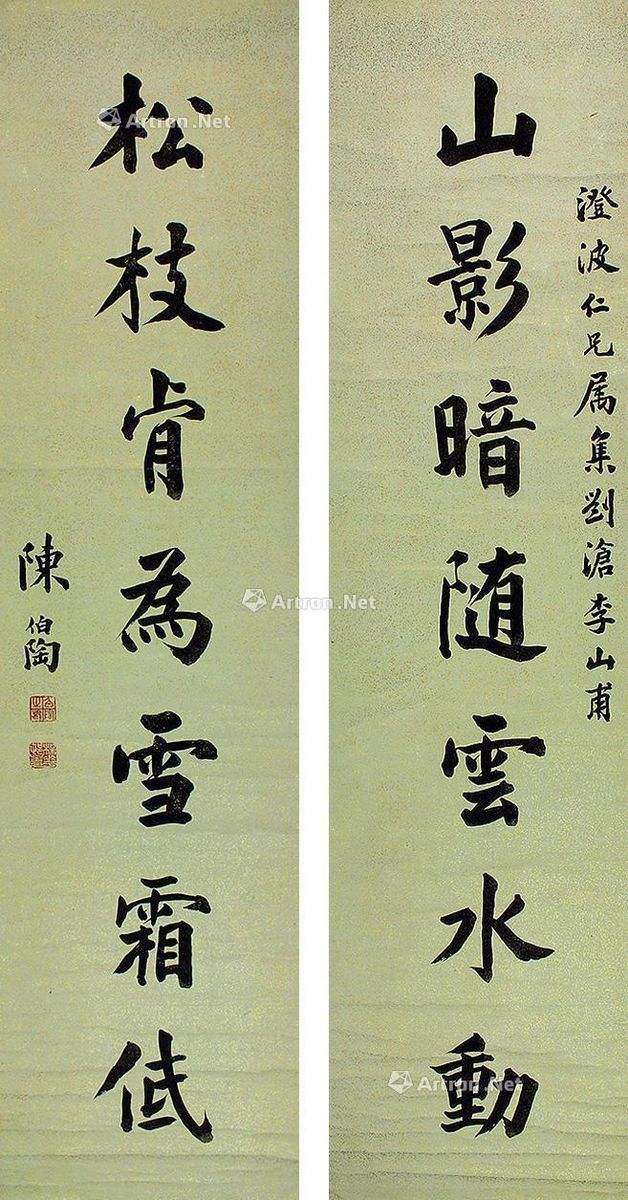 澄波仁兄属集劉滄李山甫
山影暗随雲水動
松枝肯為雪霜低
陳伯陶
Artron.Net
Artron.Net
Artron.Net